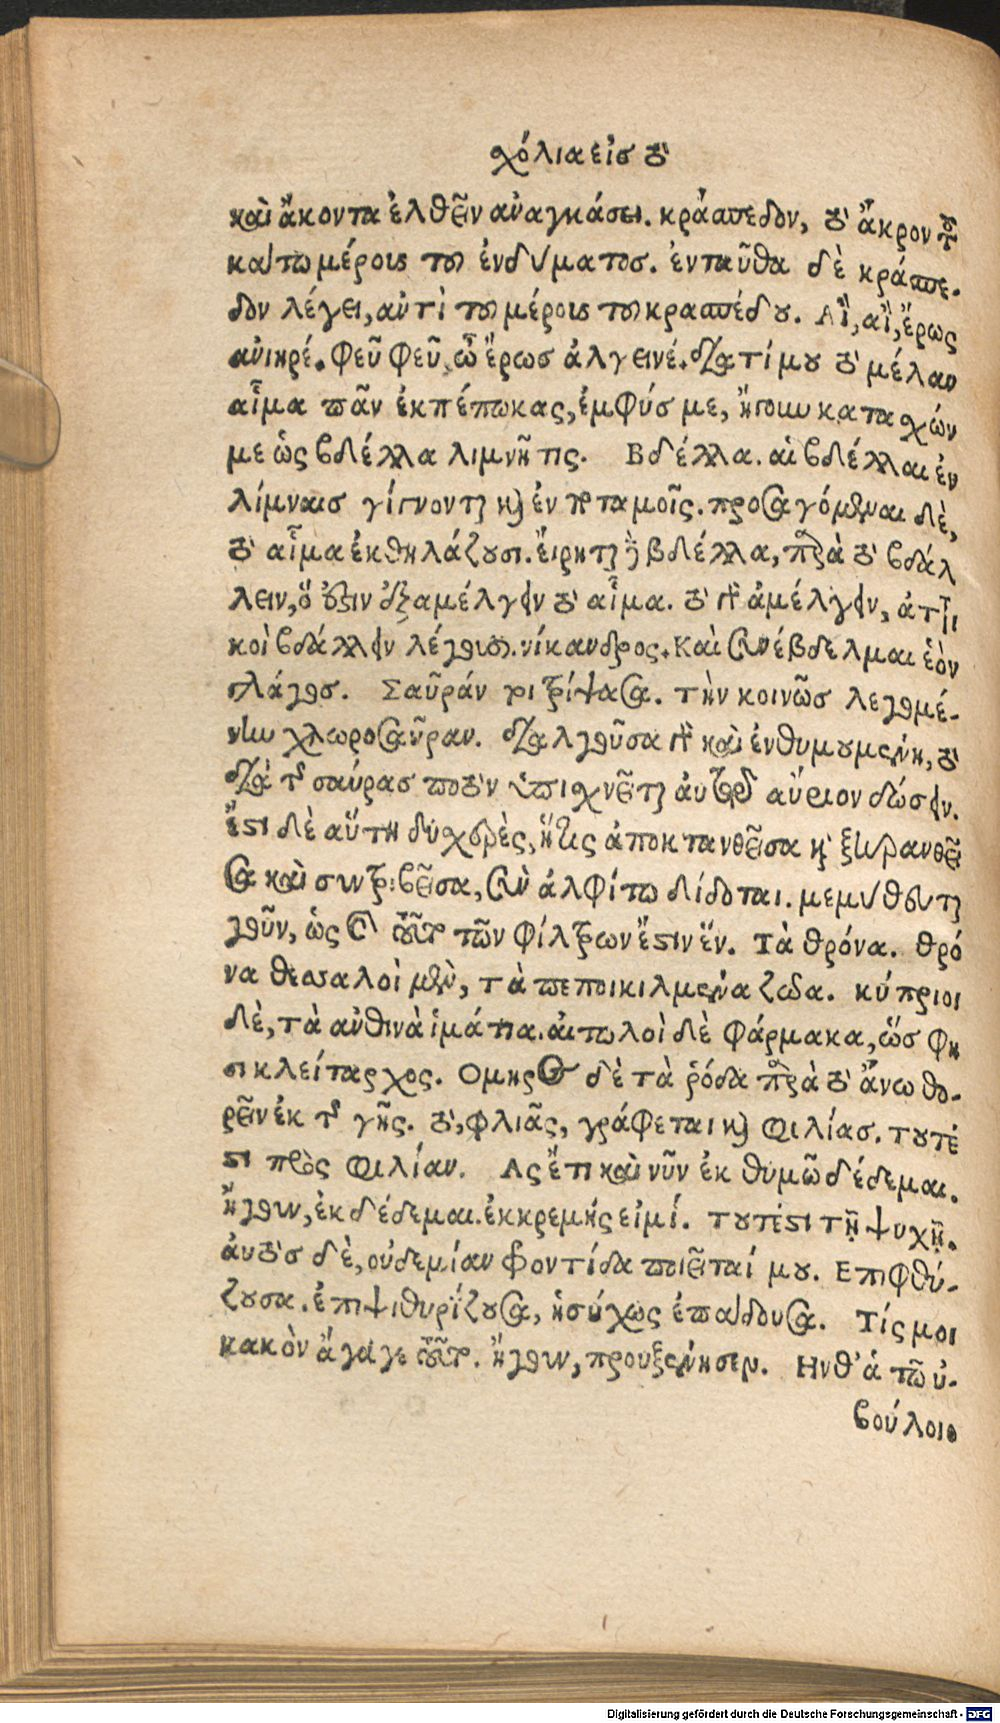 σχόλια εἰς τὸ
καὶ ἄκοντα ἐλθεῖν ἀναγκάσει. κράσπεδον, τὸ ἄκρον τοῦ
κατωμέρους τοῦ ἐνδύματος. ἐνταῦθα δὲ κράσπε-
δον λέγει, ἀντὶ τοῦ μέρους τοῦ κρασπέδου. Αἲ, αἲ, ἔρως
ἀνιηρέ. Φεῦ Φεῦ, ὦ ἔρως ἀλγεινέ. διατί μου τὸ μέλαν
αἷμα πᾶν ἐκπέπωκας, ἐμφύς με, ἤγουν κατασχών
με ὡς βδέλλα λιμνῆτις. Βδέλλα. αἱ βδέλλαι ἐν
λίμναις γίγνονται καὶ ἐν ποταμοῖς. προσαγόμεναι δὲ,
τὸ αἷμα ἐκθηλάζουσι. εἴρηται γὰρ βδέλλα, παρὰ τὸ βδάλ
λειν, ὅ ἐστιν ἐξαμέλγειν τὸ αἷμα. τὸ γὰρ ἀμέλγειν, ἀττι
κοὶ βδάλλειν λέγουσι. νίκανδρος. Καὶ ἐνέβδελμαι ἑὸν
πλάγος. Σαῦράν τοι τρίψασα. τὴν κοινῶς λεγομέ-
νην χλωροσαῦραν. διαλγοῦσα γὰρ καὶ ἐνθυμουμένη, τὸ
διὰ τῆς σαύρας ποτὸν ὑπισχνεῖται αὐτῷ αὔριον δώσειν.
ἔστι δὲ αὕτη δυσχερὲς, ἥτις ἀποκτανθεῖσα καὶ ξηρανθεῖ
σα καὶ συντριβεῖσα, σὺν ἀλφίτω δίδοται. μεμύθευται
γοῦν, ὡς καὶ τοῦτο τῶν φίλτρων ἔστιν ἕν. Τὰ θρόνα. θρό
να θεσσαλοὶ μὲν, τὰ πεποικιλμένα ζῶα. κύπριοι
δὲ, τὰ ἀνθινὰ ἱμάτια. αἰτωλοὶ δὲ φάρμακα, ὥς φη
σι κλείταρχος. Ομηρος δὲ τὰ ῥόδα παρὰ τὸ ἄνω θο-
ρεῖν ἐκ τῆς γῆς. τὸ, φλιᾶς, γράφεται καὶ φιλίας. τουτέ
στι πρὸς φιλίαν. Ας ἔτι καὶ νῦν ἐκ θυμῶ δέδεμαι.
ἤγουν, ἐκδέδεμαι. ἐκκρεμής εἰμί. τουτέστι τῇ ψυχῇ.
αὐτὸς δὲ, οὐδεμίαν φροντίδα ποιεῖταί μου. Επιφθύ-
ζουσα. ἐπιψιθυρίζουσα, ἡσύχως ἐπαίδουσα. Τίς μοι
κακὸν ἄγαγε τοῦτο. ἤγουν, προυξένησεν. Ηνθ' ἁ τῶ ὐ-
βούλοιο
Digitalisierung gefördert durch die Deutsche Forschungsgemeinschaft - DFG